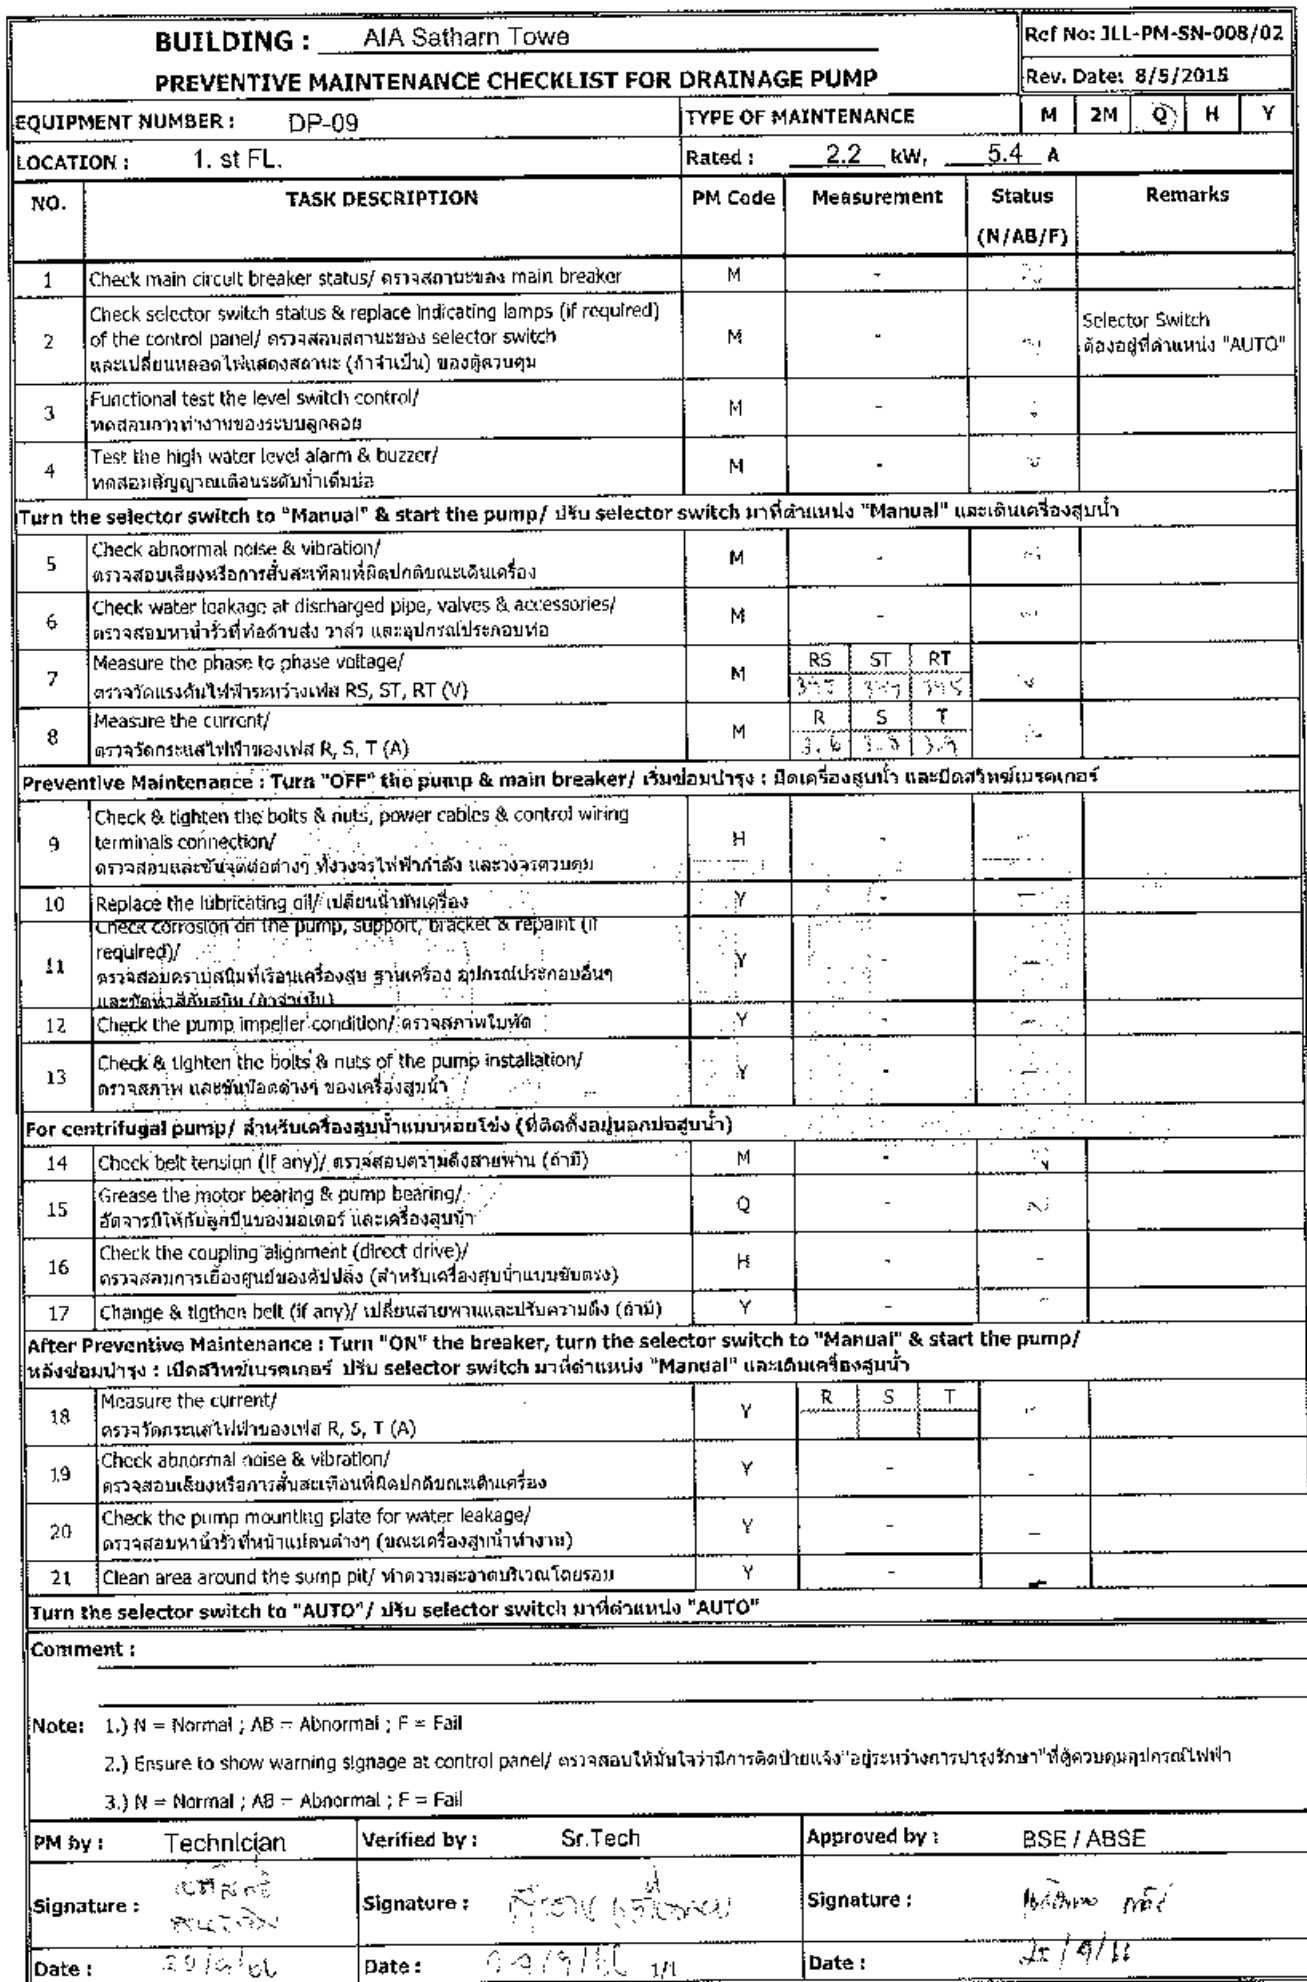 BUILDING : AIA Satharn Towe
Ref No: JLL-PM-SN-008/02
PREVENTIVE MAINTENANCE CHECKLIST FOR DRAINAGE PUMP
Rev. Date: 8/5/2015
EQUIPMENT NUMBER : DP-09
TYPE OF MAINTENANCE M 2M Q H Y
LOCATION : 1. st FL.
Rated : 2.2 kW, 5.4 A
NO. TASK DESCRIPTION PM Code Measurement Status Remarks
(N/AB/F)
1 Check main circuit breaker status/ ตรวจสถานะของ main breaker M -
Check selector switch status & replace indicating lamps (if required)
2 of the control panel/ ตรวจสอบสถานะของ selector switch M -
และเปลี่ยนหลอดไฟแสดงสถานะ (ถ้าจำเป็น) ของตู้ควบคุม
Selector Switch
ต้องอยู่ที่ตำแหน่ง "AUTO"
3 Functional test the level switch control/ M -
ทดสอบการทำงานของระบบลูกลอย
4 Test the high water level alarm & buzzer/ M -
ทดสอบสัญญาณเตือนระดับน้ำเต็มบ่อ
Turn the selector switch to "Manual" & start the pump/ ปรับ selector switch มาที่ตำแหน่ง "Manual" และเดินเครื่องสูบน้ำ
5 Check abnormal noise & vibration/ M -
ตรวจสอบเสียงหรือการสั่นสะเทือนที่ผิดปกติขณะเดินเครื่อง
6 Check water leakage at discharged pipe, valves & accessories/ M -
ตรวจสอบหาน้ำรั่วที่ท่อด้านส่ง วาล์ว และอุปกรณ์ประกอบท่อ
7 Measure the phase to phase voltage/ M RS ST RT
ตรวจวัดแรงดันไฟฟ้าระหว่างเฟส RS, ST, RT (V)
8 Measure the current/ M R S T
ตรวจวัดกระแสไฟฟ้าของเฟส R, S, T (A) 3.6 3.8 3.9
Preventive Maintenance : Turn "OFF" the pump & main breaker/ เริ่มซ่อมบำรุง : ปิดเครื่องสูบน้ำ และปิดสวิทซ์เบรคเกอร์
Check & tighten the bolts & nuts, power cables & control wiring
9 terminals connection/ H -
ตรวจสอบและขันจุดต่อต่างๆ ทั้งวงจรไฟฟ้ากำลัง และวงจรควบคุม
10 Replace the lubricating oil/ เปลี่ยนน้ำมันเครื่อง Y -
Check corrosion on the pump, support, bracket & repaint (if
required)/
11 ตรวจสอบคราบสนิมที่เรือนเครื่องสูบ ฐานเครื่อง อุปกรณ์ประกอบอื่นๆ Y - -
และขัดทำสีกันสนิม (ถ้าจำเป็น)
12 Check the pump impeller condition/ ตรวจสภาพใบพัด Y - -
13 Check & tighten the bolts & nuts of the pump installation/ Y - -
ตรวจสภาพ และขันน๊อตต่างๆ ของเครื่องสูบน้ำ
For centrifugal pump/ สำหรับเครื่องสูบน้ำแบบหอยโข่ง (ที่ติดตั้งอยู่นอกบ่อสูบน้ำ)
14 Check belt tension (if any)/ ตรวจสอบความตึงสายพาน (ถ้ามี) M -
15 Grease the motor bearing & pump bearing/ Q - N
อัดจารบีให้กับลูกปืนของมอเตอร์ และเครื่องสูบน้ำ
16 Check the coupling alignment (direct drive)/ H - -
ตรวจสอบการเยื้องศูนย์ของคัปปลิ้ง (สำหรับเครื่องสูบน้ำแบบขับตรง)
17 Change & tigthen belt (if any)/ เปลี่ยนสายพานและปรับความตึง (ถ้ามี) Y - -
After Preventive Maintenance : Turn "ON" the breaker, turn the selector switch to "Manual" & start the pump/
หลังซ่อมบำรุง : เปิดสวิทซ์เบรคเกอร์ ปรับ selector switch มาที่ตำแหน่ง "Manual" และเดินเครื่องสูบน้ำ
18 Measure the current/ Y R S T -
ตรวจวัดกระแสไฟฟ้าของเฟส R, S, T (A)
19 Check abnormal noise & vibration/ Y - -
ตรวจสอบเสียงหรือการสั่นสะเทือนที่ผิดปกติขณะเดินเครื่อง
20 Check the pump mounting plate for water leakage/ Y - -
ตรวจสอบหาน้ำรั่วที่หน้าแปลนต่างๆ (ขณะเครื่องสูบน้ำทำงาน)
21 Clean area around the sump pit/ ทำความสะอาดบริเวณโดยรอบ Y - -
Turn the selector switch to "AUTO"/ ปรับ selector switch มาที่ตำแหน่ง "AUTO"
Comment :
Note: 1.) N = Normal ; AB = Abnormal ; F = Fail
2.) Ensure to show warning signage at control panel/ ตรวจสอบให้มั่นใจว่ามีการติดป้ายแจ้ง"อยู่ระหว่างการบำรุงรักษา"ที่ตู้ควบคุมอุปกรณ์ไฟฟ้า
3.) N = Normal ; AB = Abnormal ; F = Fail
PM by : Technician Verified by : Sr.Tech Approved by : BSE / ABSE
Signature : Signature : Signature :
Date : Date : 1/1 Date :